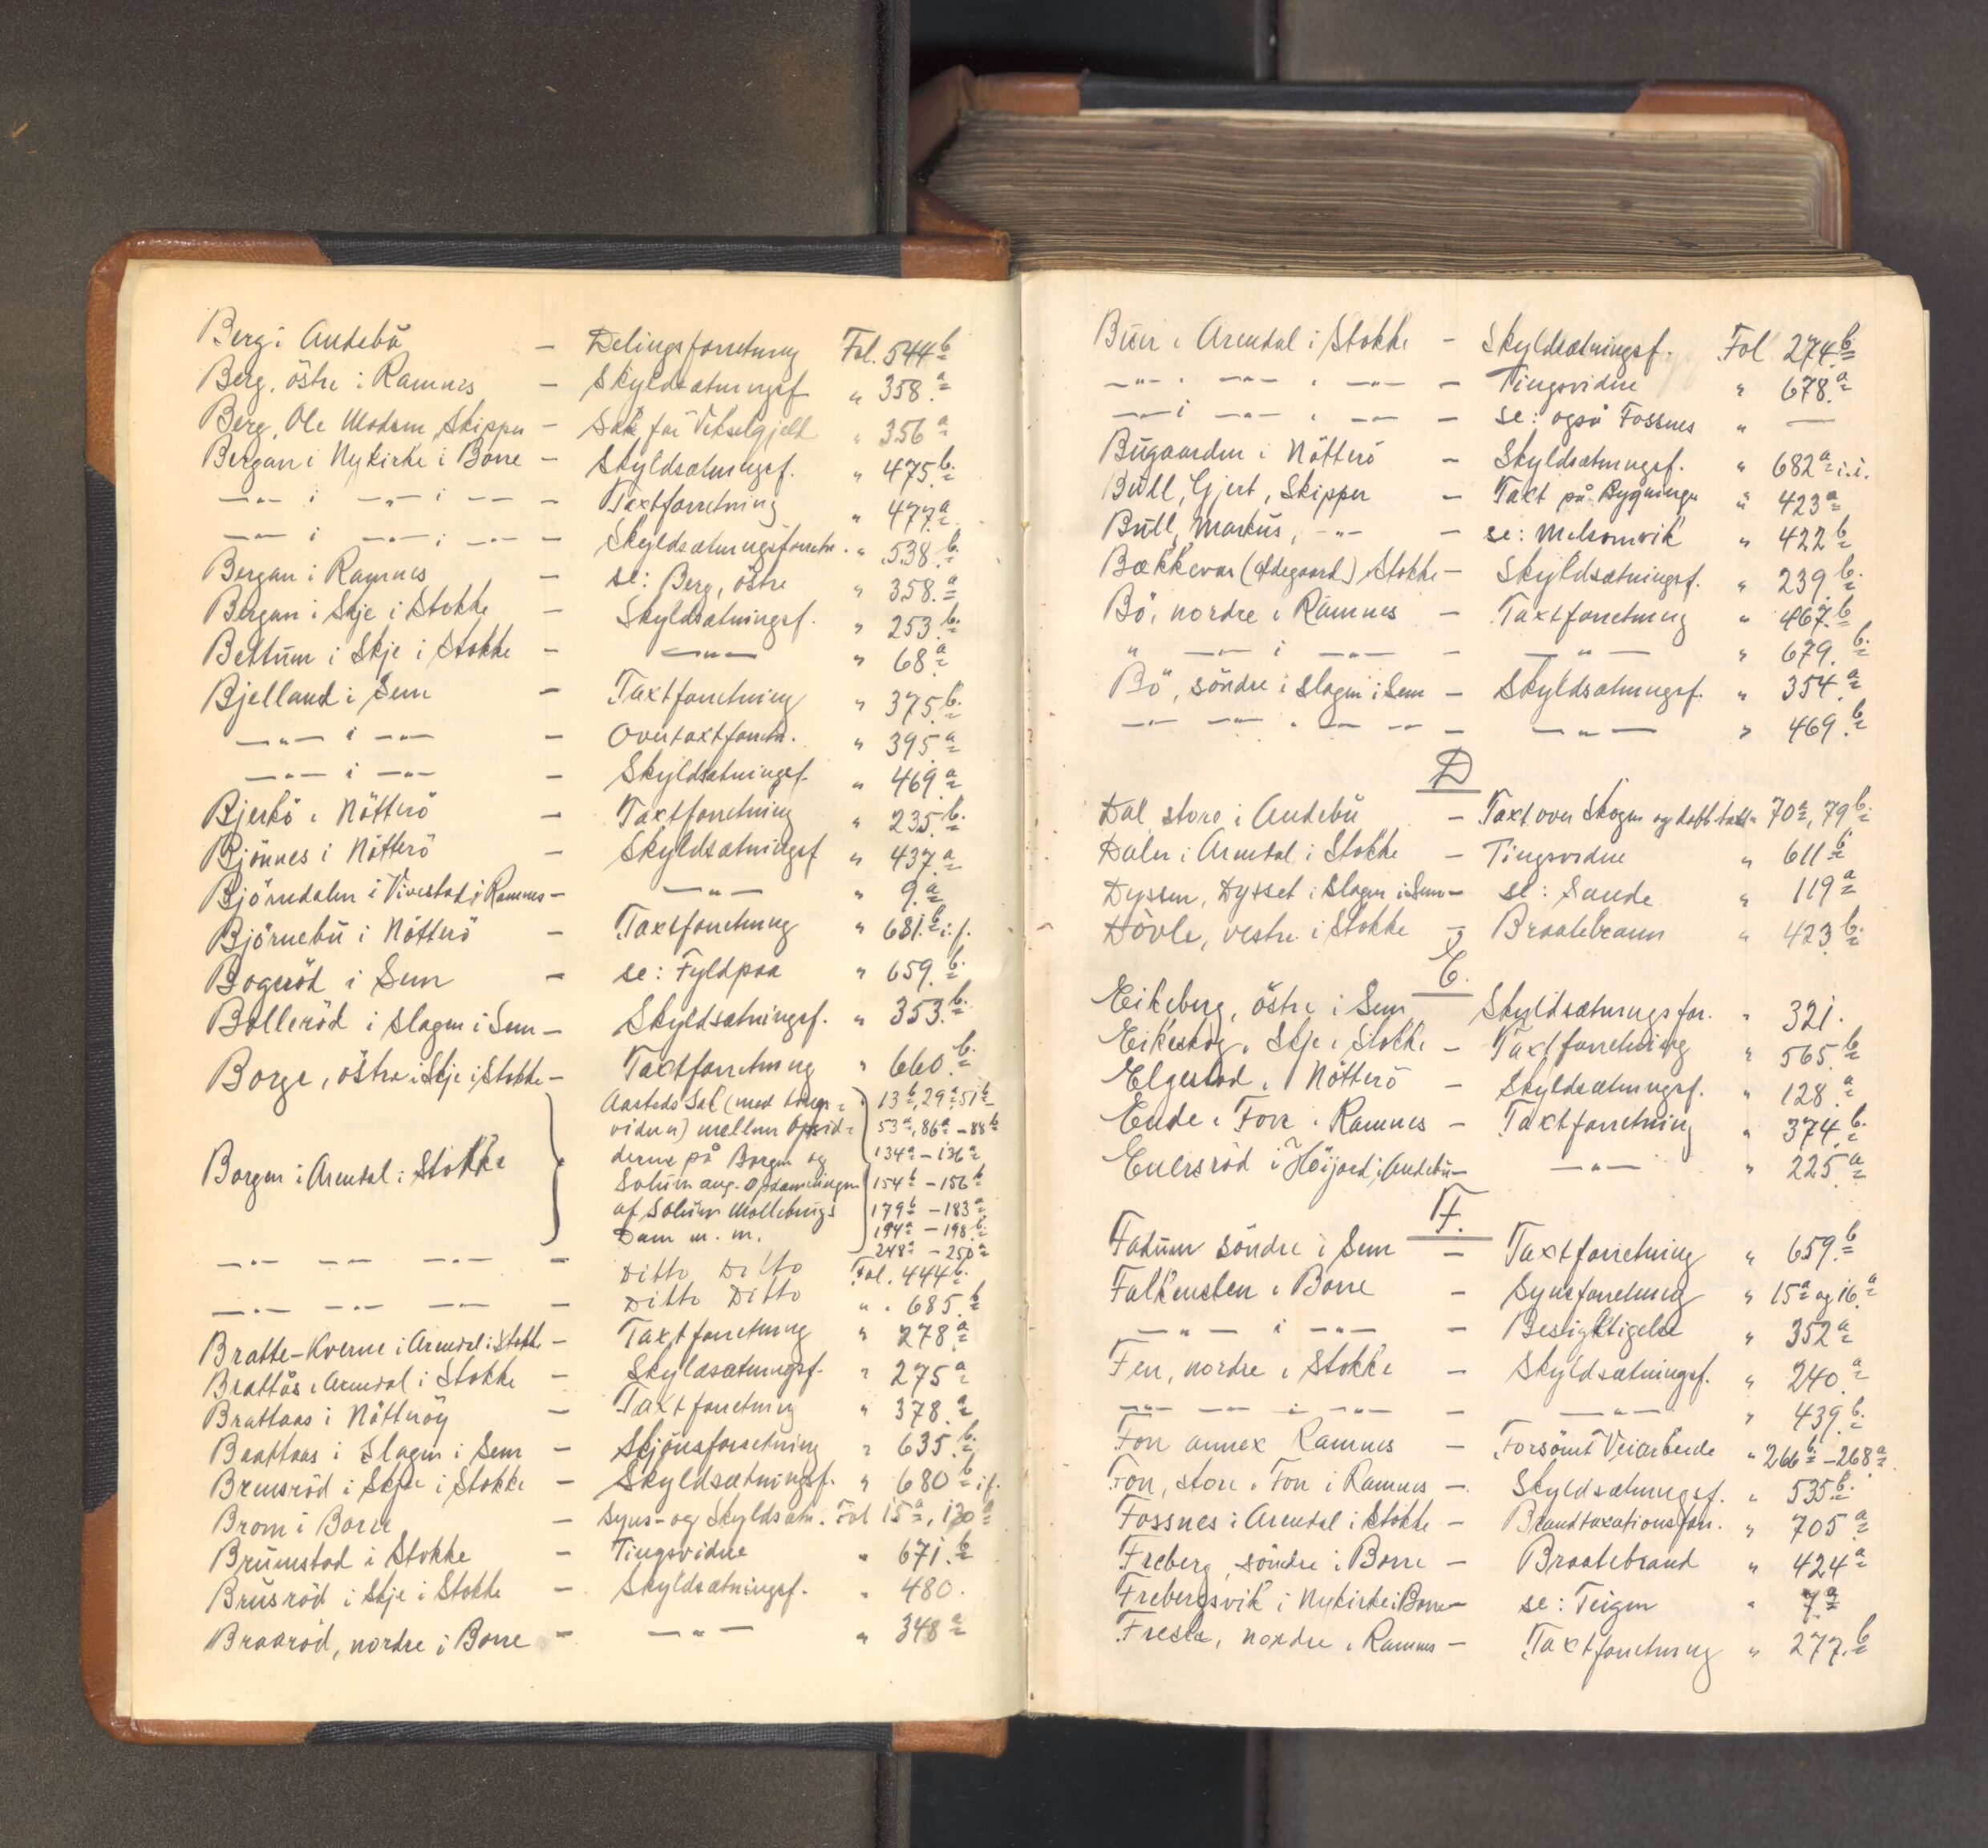 Berg i Andebu — Delingsforretning Fol. 544 b
Berg, östre i Ramnes — Skyldsætningsf. " 358 a
Berg, Ole Madsen, Skipper — Sak för Vekselgjeld " 356 a
Bergan i Nykirke i Borre — Skyldsætningsf. " 475 b.
—"— i —"— i —— — Taxtforretning " 477 a
—"— i —"— i —"— — Skyldsætningsforretn. " 538 b.
Bergan i Ramnes — se: Berg, östre " 358 a
Bergan i Skje i Stokke — Skyldsætningsf. " 253 b.
Bettum i Skje i Stokke — —"— " 68 a
Bjelland i Sem — Taxtforretning " 375 b.
—"— i —"— — Overtaxtforretn. " 395 a
—"— i —"— — Skyldsætningsf. " 469 a
Bjerkö i Nötterö — Taxtforretning " 235 b.
Bjönnes i Nötterö — Skyldsætningsf " 437 a
Björndalen i Vivestad i Ramnes — —"— " 9 a
Björnebu i Nötterö — Taxtforretning " 681 b i.f.
Bogeröd i Sem — se: Fyldpaa " 659 b.
Bolleröd i Slagen i Sem — Skyldsætningsf. " 353 b.
Borge, östre i Skje i Stokke — Taxtforretning " 660 b.
Aasteds Sak (med tings= 13 b, 29 a, 51 b
vidner) mellem Opsid= 53 a, 86 a – 88 b
derne på Borgen og 134 a – 136 a
Borgen i Arendal i Stokke Solum ang. Opdæmningen 154 b – 156 b
af Solum Mollebrugs 179 b – 183 a
Dam m. m. 194 a – 198 b.
248 a – 250 a
—"— —— —"— — Ditto Ditto Fol. 444 b.
—"— —"— —— — Ditto Ditto " " 685 b
Bratte-Kverne i Arendal i Stokke — Taxtforretning " 278 a
Brattås i Arendal i Stokke — Skyldsætningsf. " 275 a
Brattaas i Nötteröy — Taxtforretning " 378 a
Brattaas i Slagen i Sem — Skjönsforretning " 635 b.
Brensröd i Skje i Stokke — Skyldsætningsf. " 680 b i.f.
Brom i Borre — Syns- og Skyldsætn. Fol 15 a, 130 a
Brunstad i Stokke — Tingsvidne " 671 b
Brusröd i Skje i Stokke — Skyldsætningsf. " 480.
Braaröd, nordre i Borre — —"— " 348 a
Buer i Arendal i Stokke — Skyldsætningsf. Fol 274 b.
—"— " —"— " —"— — Tingsvidne " 678 a
—"— i —"— " —"— — se: også Fossnes " —
Bugaarden i Nötterö — Skyldsætningsf. " 682 a i.i.
Bull, Gjert, Skipper — Taxt på Bygninger " 423 a
Bull, Markus, —"— — se: Melsomvik " 422 b
Bækkevar (Ödegaard) Stokke — Skyldsætningsf. " 239 b.
Bö, nordre i Ramnes — Taxtforretning " 467 b
" —"— i —"— — —"— " 679 b.
Bö, söndre i Slagen i Sem — Skyldsætningsf. " 354 a
—"— —"— " —"— —"— — —"— " 469 b
D
Dal store i Andebu — Taxt over Skogen og dobb. taxt " 70 a, 79 b.
Dalen i Arendal i Stokke — Tingsvidne " 611 b
Dyssen, Dysset i Slagen i Sem — se: Sande " 119 a
Dövle, vestre i Stokke — Braatebrann " 423 b.
E.
Eikeberg, östre i Sem Skyldsætningsfor. " 321.
Eikeskog i Skje i Stokke — Taxtforretning " 565 b
Elgestad i Nötterö — Skyldsætningsf. " 128 a
Ende i Fon i Ramnes — Taxtforretning " 374 b.
Enersröd i Höijord i Andebu — —"— " 225 a
F.
Fadum söndre i Sem — Taxtforretning " 659 b
Falkensten i Borre — Synsforretning " 15 a og 16 a
—"— i —"— — Besigktigelse " 352 a
Fen, nordre i Stokke — Skyldsætningsf. " 240 a
—"— —— i —"— — —"— " 439 b.
Fon annex Ramnes — Forsömt Veiarbeide " 266 b – 268 a
Fon, store i Fon i Ramnes — Skyldsætningsf. " 535 b.
Fossnes i Arendal i Stokke — Brandtaxationsforr. " 705 a
Freberg, söndre i Borre — Braatebrand " 424 a
Frebergsvik i Nykirke i Borre — se: Teigen " 7 a
Freste, nordre i Ramnes — Taxtforretning " 277 b